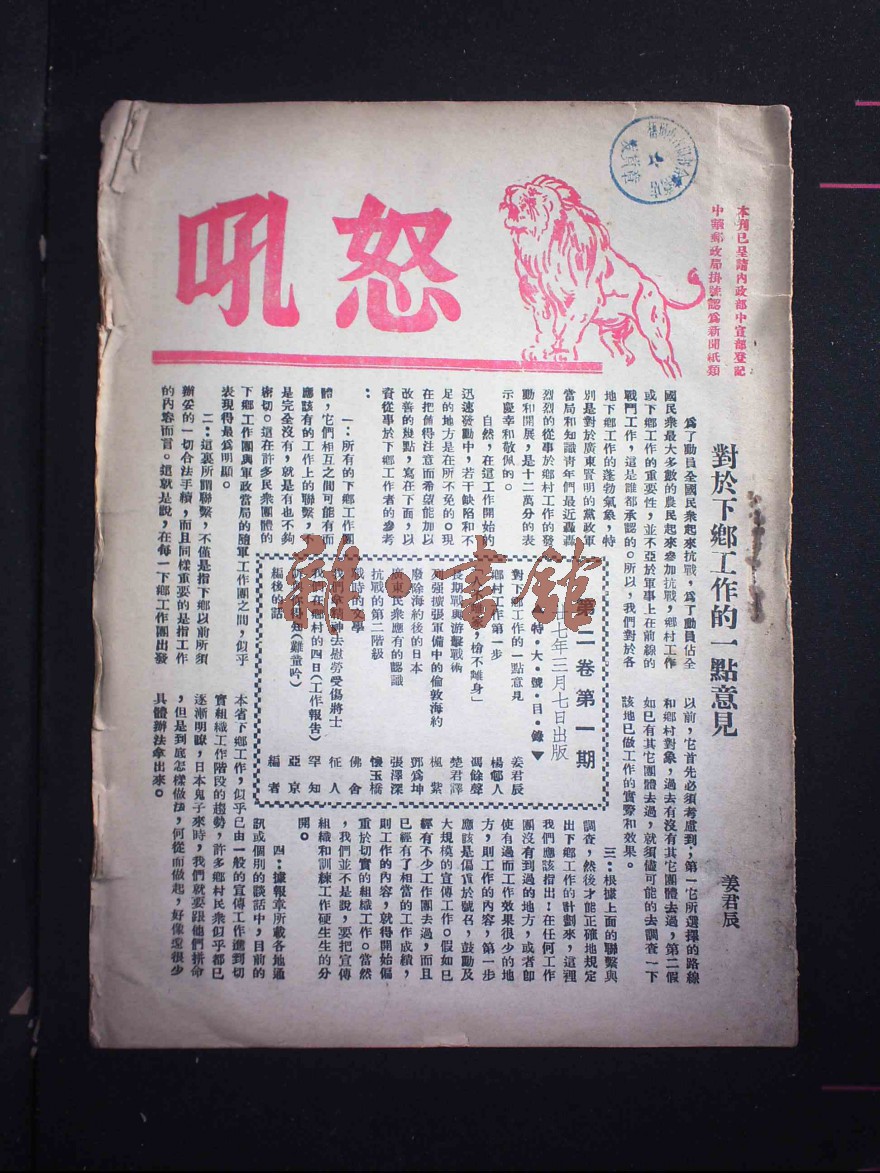 怒吼
本刊已呈請內政部中宣部登記
中華郵政局掛號認為新聞紙類
對於下鄉工作的一點意見
姜君辰
為了動員全國民衆起來抗戰,爲了動員佔全
國民衆最大多數的農民起來參加抗戰,鄉村工作
或下鄉工作的重要性,並不亞於軍事上在前線的
戰鬥工作,這是誰都承認的。所以,我們對於各
地下鄉工作的蓬勃氣象,特
別是對於廣東賢明的黨政軍
當局和知識青年們最近轟轟
烈烈的從事於鄉村工作的發
動和開展,是十二萬分的表
示慶幸和敬佩的。
自然,在這工作開始的
迅速發動中,若干缺陷和不
足的地方是在所不免的。現
在把值得注意而希望能加以
改善的幾點,寫在下面,以
資從事於下鄉工作者的參考
:
一:所有的下鄉工作團
體,它們相互之間可能有而
應該有的工作上的聯繫,不
是完全沒有,就是有也不夠
密切。這在許多民衆團體的
下鄉工作團與軍政當局的隨軍工作團之間,似乎
表現得最爲明顯。
二:這裏所謂聯繫,不僅是指下鄉以前所須
辦妥的一切合法手續,而且同樣重要的是指工作
的內容而言。這就是說,在每一下鄉工作團出發
以前,它首先必須考慮到;第一它所選擇的路線
和鄉村對象,過去有沒有其它團體去過,第二假
如已有其它團體去過,就須儘可能的去調查一下
該地已做工作的實際和效果。
三:根據上面的聯繫與
調查,然後才能正確地規定
出下鄉工作的計劃來,這裡
我們應該指出:在任何工作
團沒有到過的地方,或者即
使有過而工作效果很少的地
方,則工作的內容,第一步
應該是偏重於號召,鼓動及
大規模的宣傳工作。假如已
經有不少工作團去過,而且
已經有了相當的工作成績,
則工作的內容,就得開始偏
重於切實的組織工作。當然
,我們並不是說,要把宣傳
組織和訓練工作硬生生的分
開。
四:據報章所載各地通
訊或個別的談話中,目前的
本省下鄉工作,似乎已由一般的宣傳工作進到切
實組織工作階段的趨勢,許多鄉村民衆似乎都已
逐漸明瞭,日本鬼子來時,我們就要跟他們拼命
,但是到底怎樣做法,何從而做起,好像還很少
具體辦法拿出來。
第二卷第一期
廿七年三月七日出版
▲特·大·號·目·錄▼
對下鄉工作的一點意見 姜君辰
鄉村工作第一步 楊邨人
家,槍不離身」 馮餘聲
長期戰與游擊戰術 楚君譯
列強擴張軍備中的倫敦海約 楓紫
廢除海約後的日本 郭爲坤
廣東民衆應有的認識 張澤深
抗戰的第二階級 懷玉橋
戰時的文學 佛舍
我們拿精神去慰勞受傷將士 征人
我們在鄉村的四日(工作報告) 罕知
得知(難童吟) 亞京
編後的話 編者
龍一書館